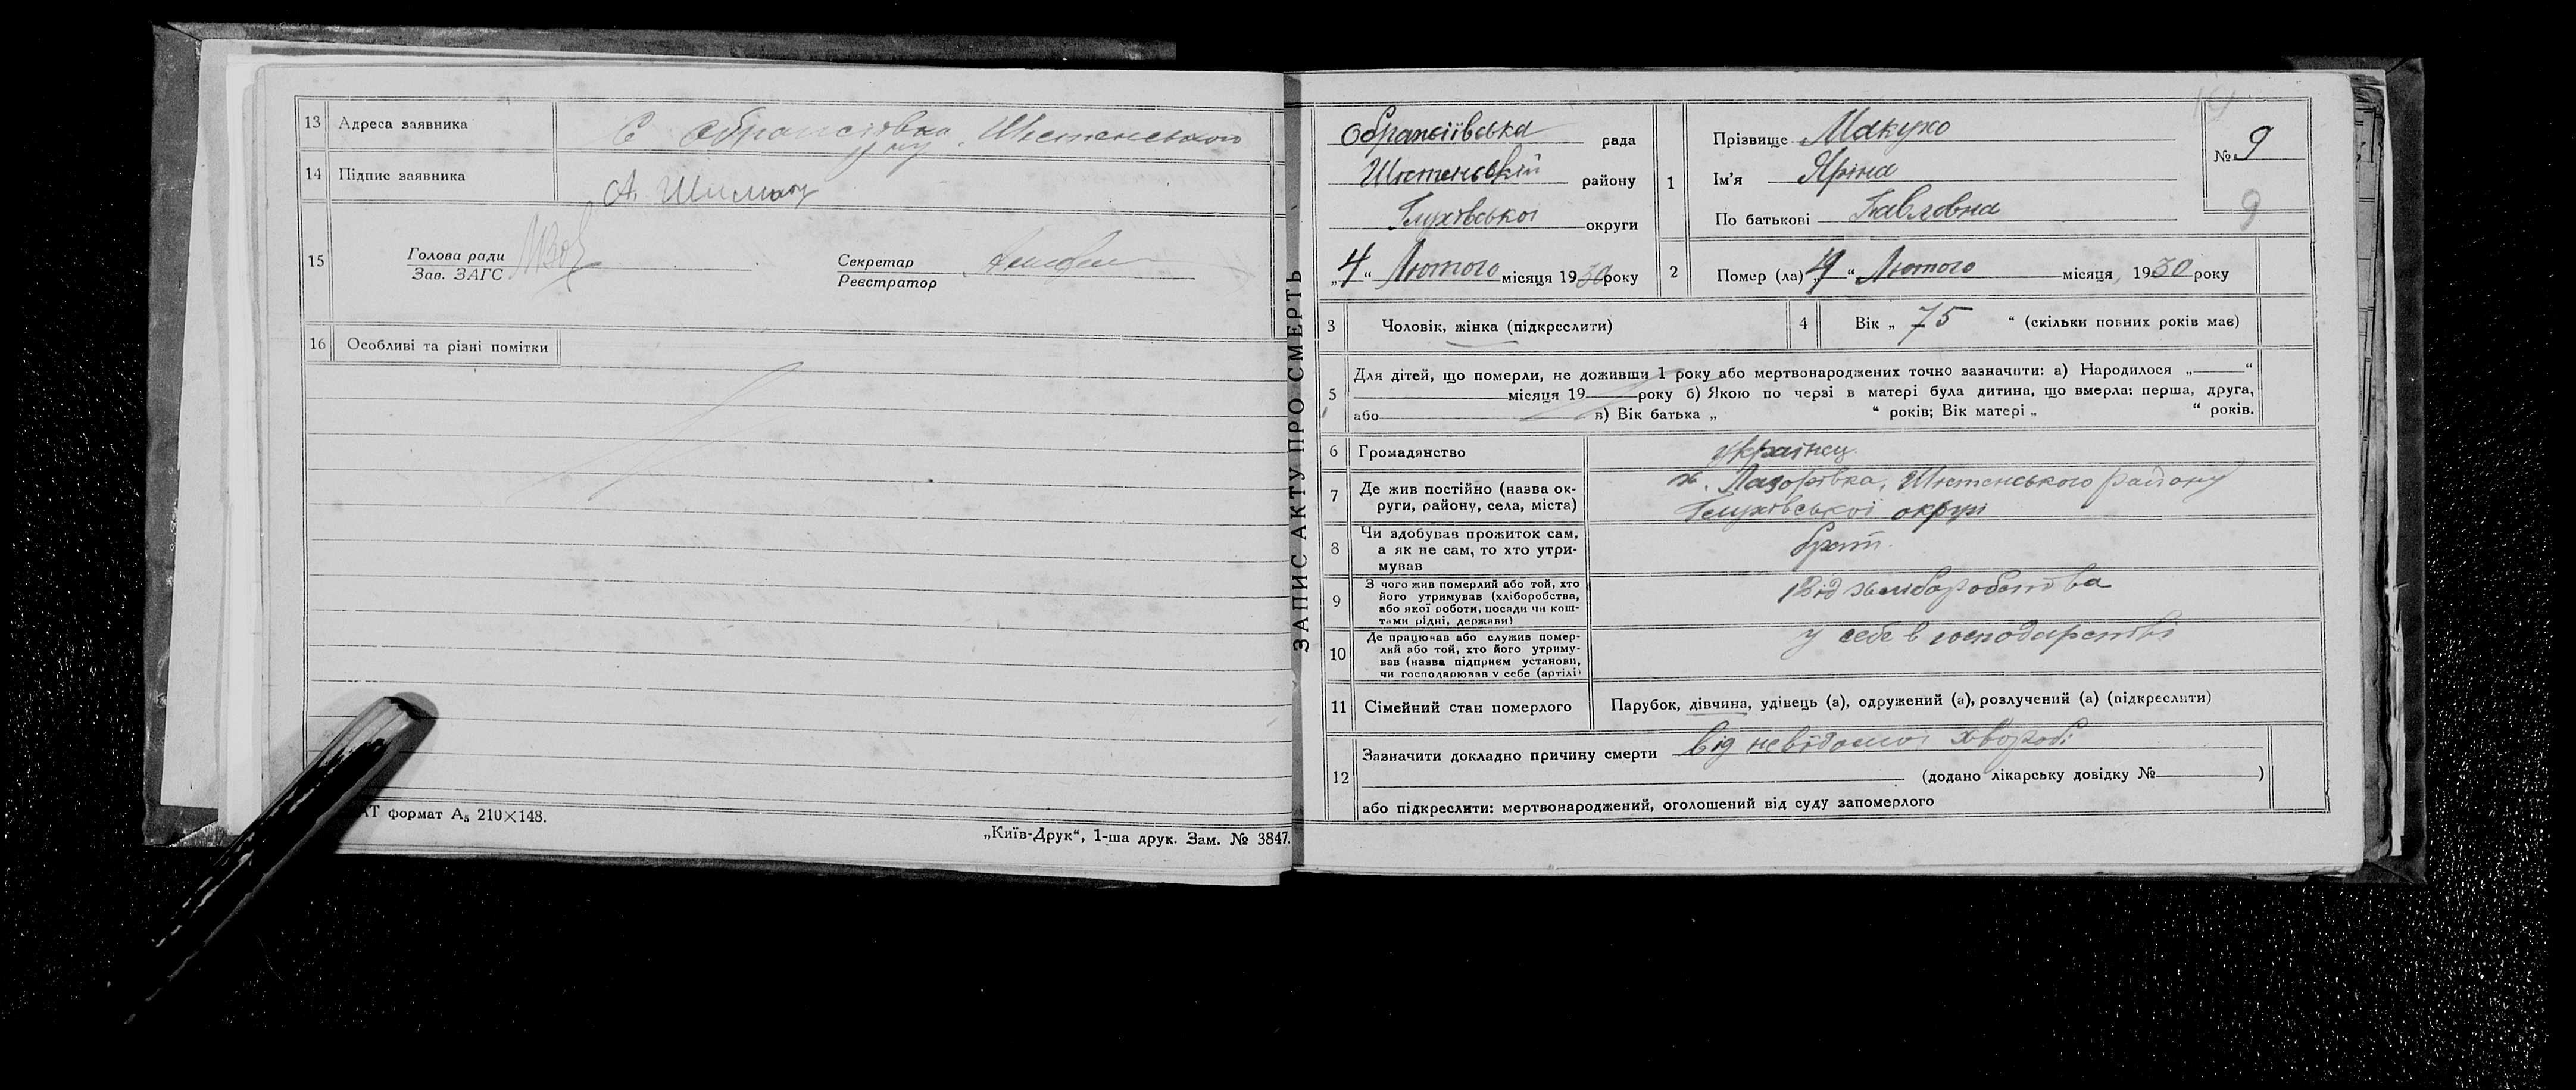 13 Адреса заявника С Обрамєівка Шостенського
14 Підпис заявника А. Шимаг
15 Голова ради
Зав. ЗАГС
Секретар
Реєстратор
16 Особливі та різні помітки
АТ формат А₅ 210×148.
„Київ-Друк“, 1-ша друк. Зам. № 3847.
ЗАПИС АКТУ ПРО СМЕРТЬ
рада
Шостенській району
Глухівської округи
„4“ Лютого місяця 1930 року
1 Прізвище Макухо
Ім'я Яріна
По батькові Павловна
№ 9
9
2 Помер (ла) „4“ Лютого місяця, 1930 року
3 Чоловік, жінка (підкреслити)
4 Вік „ 75 “ (скільки повних років має)
5 Для дітей, що померли, не доживши 1 року або мертвонароджених точно зазначити: а) Народилося „ “
місяця 19 року б) Якою по черзі в матері була дитина, що вмерла: перша, друга,
або в) Вік батька „ “ років; Вік матері „ “ років.
6 Громадянство українец
7 Де жив постійно (назва ок-
руги, району, села, міста)
х. Лазорівка, Шостенського району
Глухівської округі
8 Чи здобував прожиток сам,
а як не сам, то хто утри-
мував
брат.
9 З чого жив померлий або той, хто
його утримував (хліборобства,
або якої роботи, посади чи кош-
тами рідні, держави)
Від хліборобства
10 Де працював або служив помер-
лий або той, хто його утриму-
вав (назва підприєм установи,
чи господарював у себе (артілі)
у себе в господарстві
11 Сімейний стан померлого Парубок, дівчина, удівець (а), одружений (а), розлучений (а) (підкреслити)
12 Зазначити докладно причину смерти від невідомої хвороби
(додано лікарську довідку № )
або підкреслити: мертвонароджений, оголошений від суду запомерлого